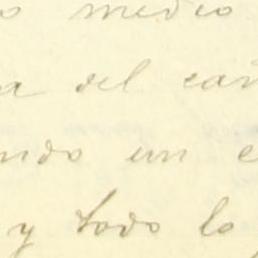 o medio
a del cañ
ndo un e
y todo lo